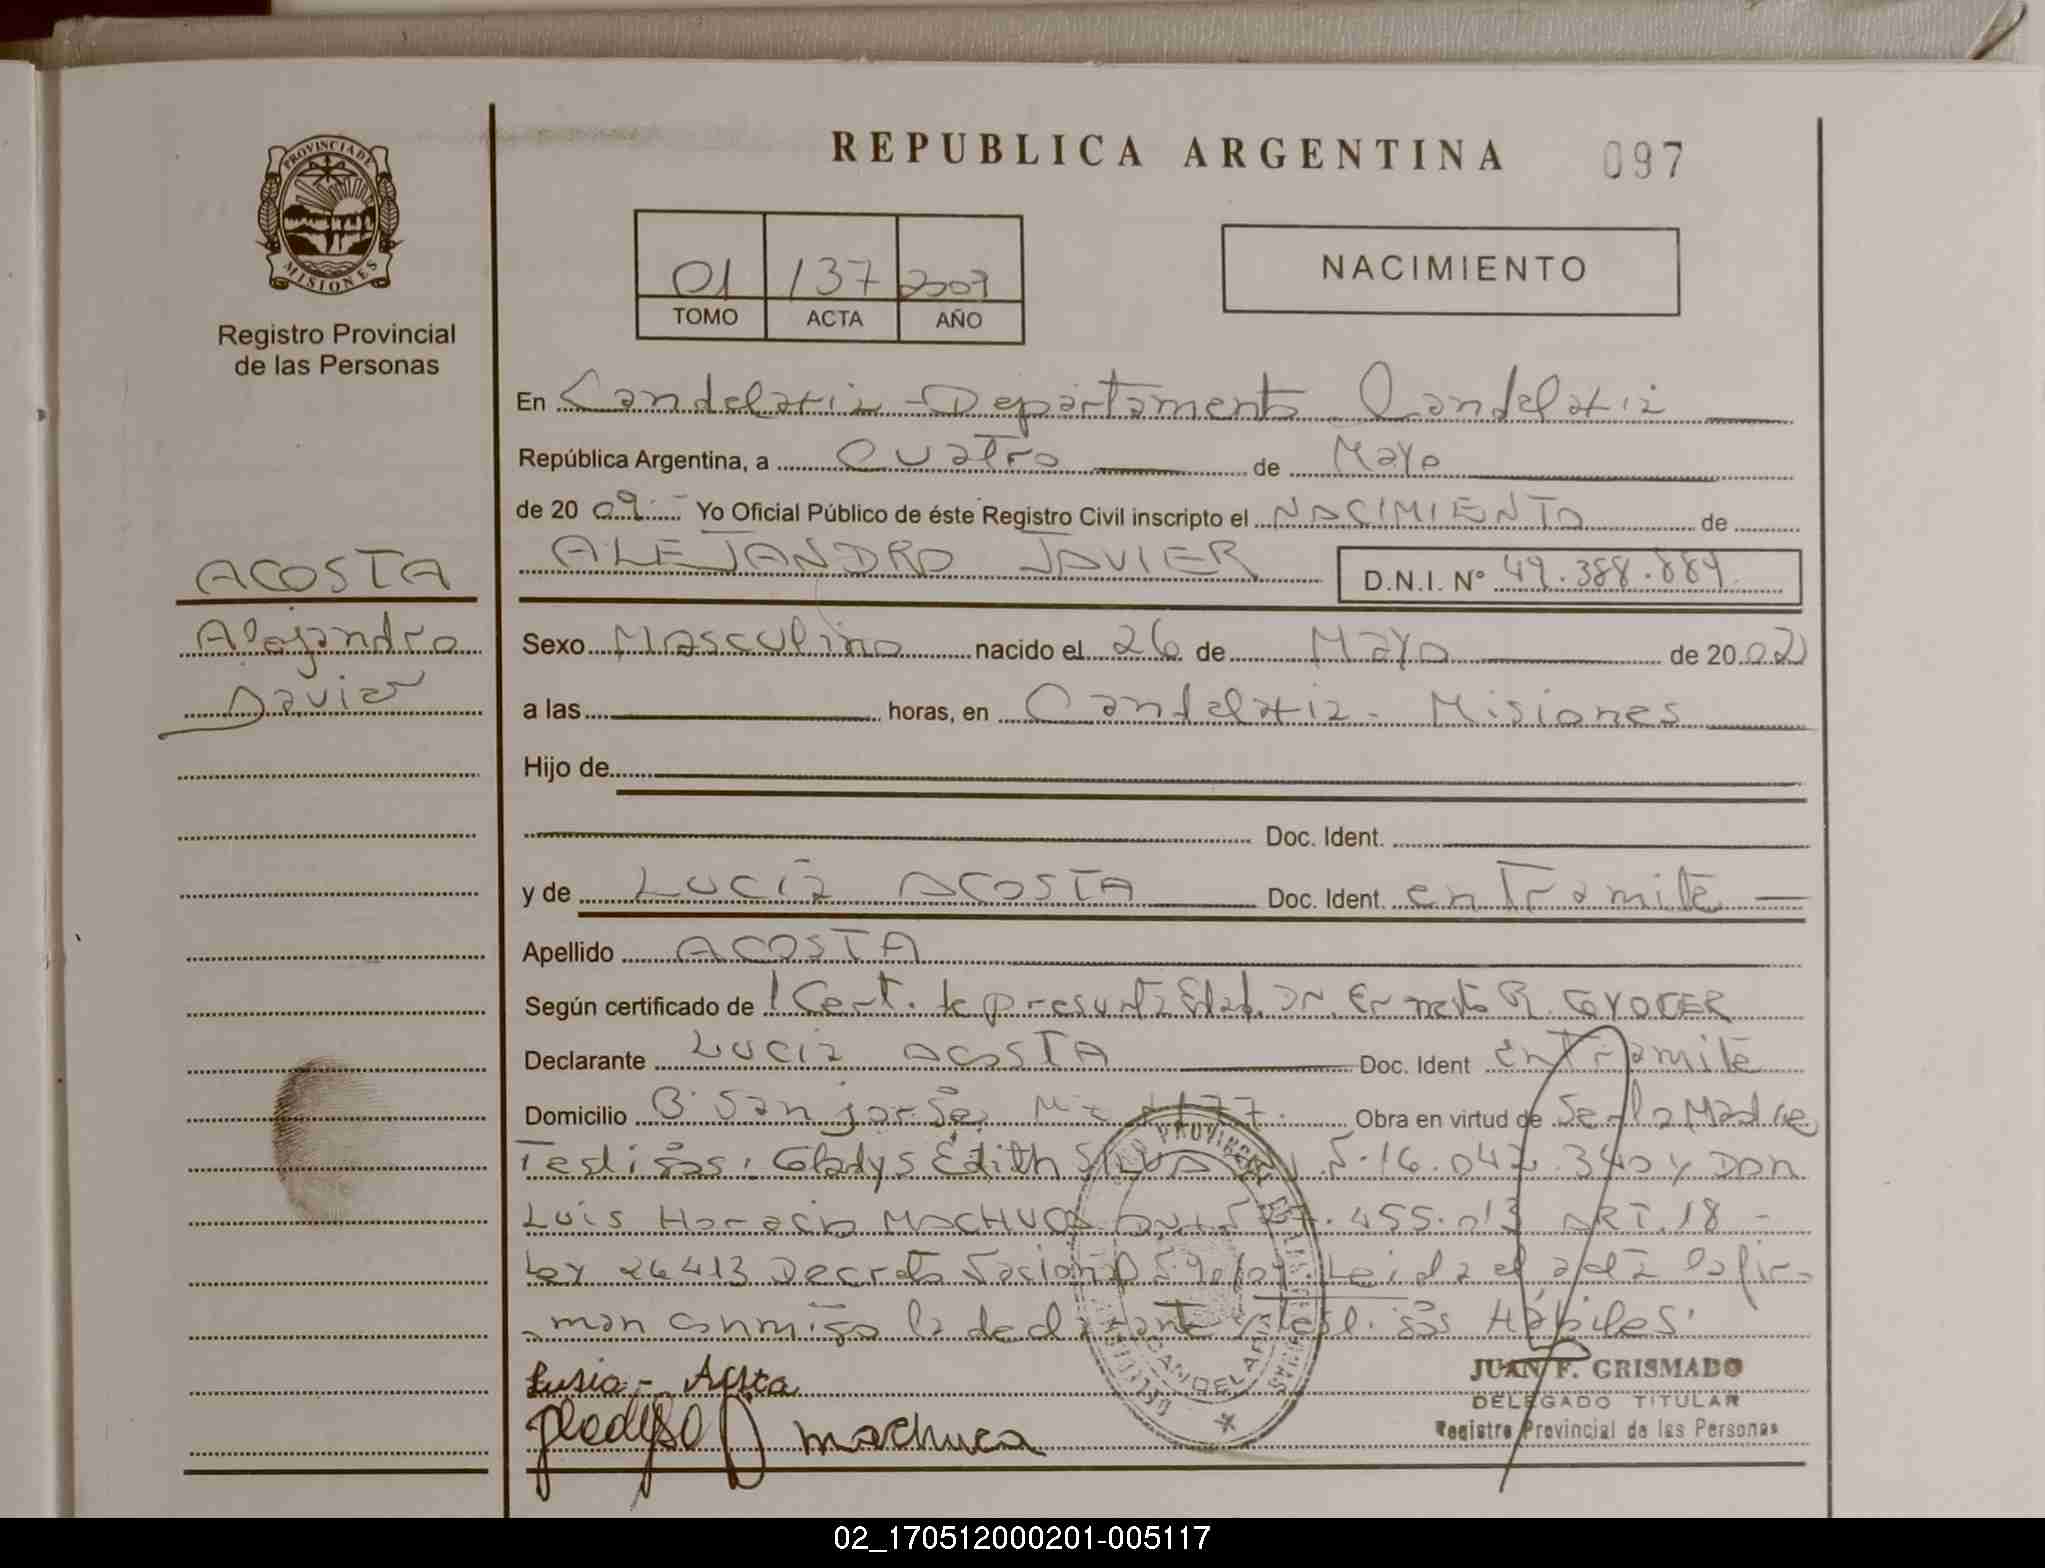 REPUBLICA ARGENTINA 097
PROVINCIA DE MISIONES
Registro Provincial
de las Personas
01 137 2009
TOMO ACTA AÑO
NACIMIENTO
En Candelaria - Departamento Candelaria
República Argentina, a Cuatro de Mayo
de 20 09 Yo Oficial Público de éste Registro Civil inscripto el NACIMIENTO de
ALEJANDRO JAVIER D.N.I. Nº 49.388.889
ACOSTA
Alejandro
Javier
Sexo Masculino nacido el 26 de Mayo de 20 02
a las horas, en Candelaria - Misiones
Hijo de
Doc. Ident.
y de Lucia ACOSTA Doc. Ident. en Tramite
Apellido ACOSTA
Según certificado de 1 Cert. de presunta Edad Dr. Ernesto R.
Declarante Lucia ACOSTA Doc. Ident en Tramite
Domicilio B. San jorge Obra en virtud de Ser la Madre
Testigos: Gladys Edith SILVA 340 y Don
Luis Horacio MACHUCA 455.013 ART. 18 -
Ley 26413 Decreto Nacional Leida el acta la fir-
man conmigo la declarante y testigos Hábiles.
Lusia - Acosta
machuca
CANDELARIA
JUAN F. GRISMADO
DELEGADO TITULAR
Registro Provincial de las Personas
02_170512000201-005117